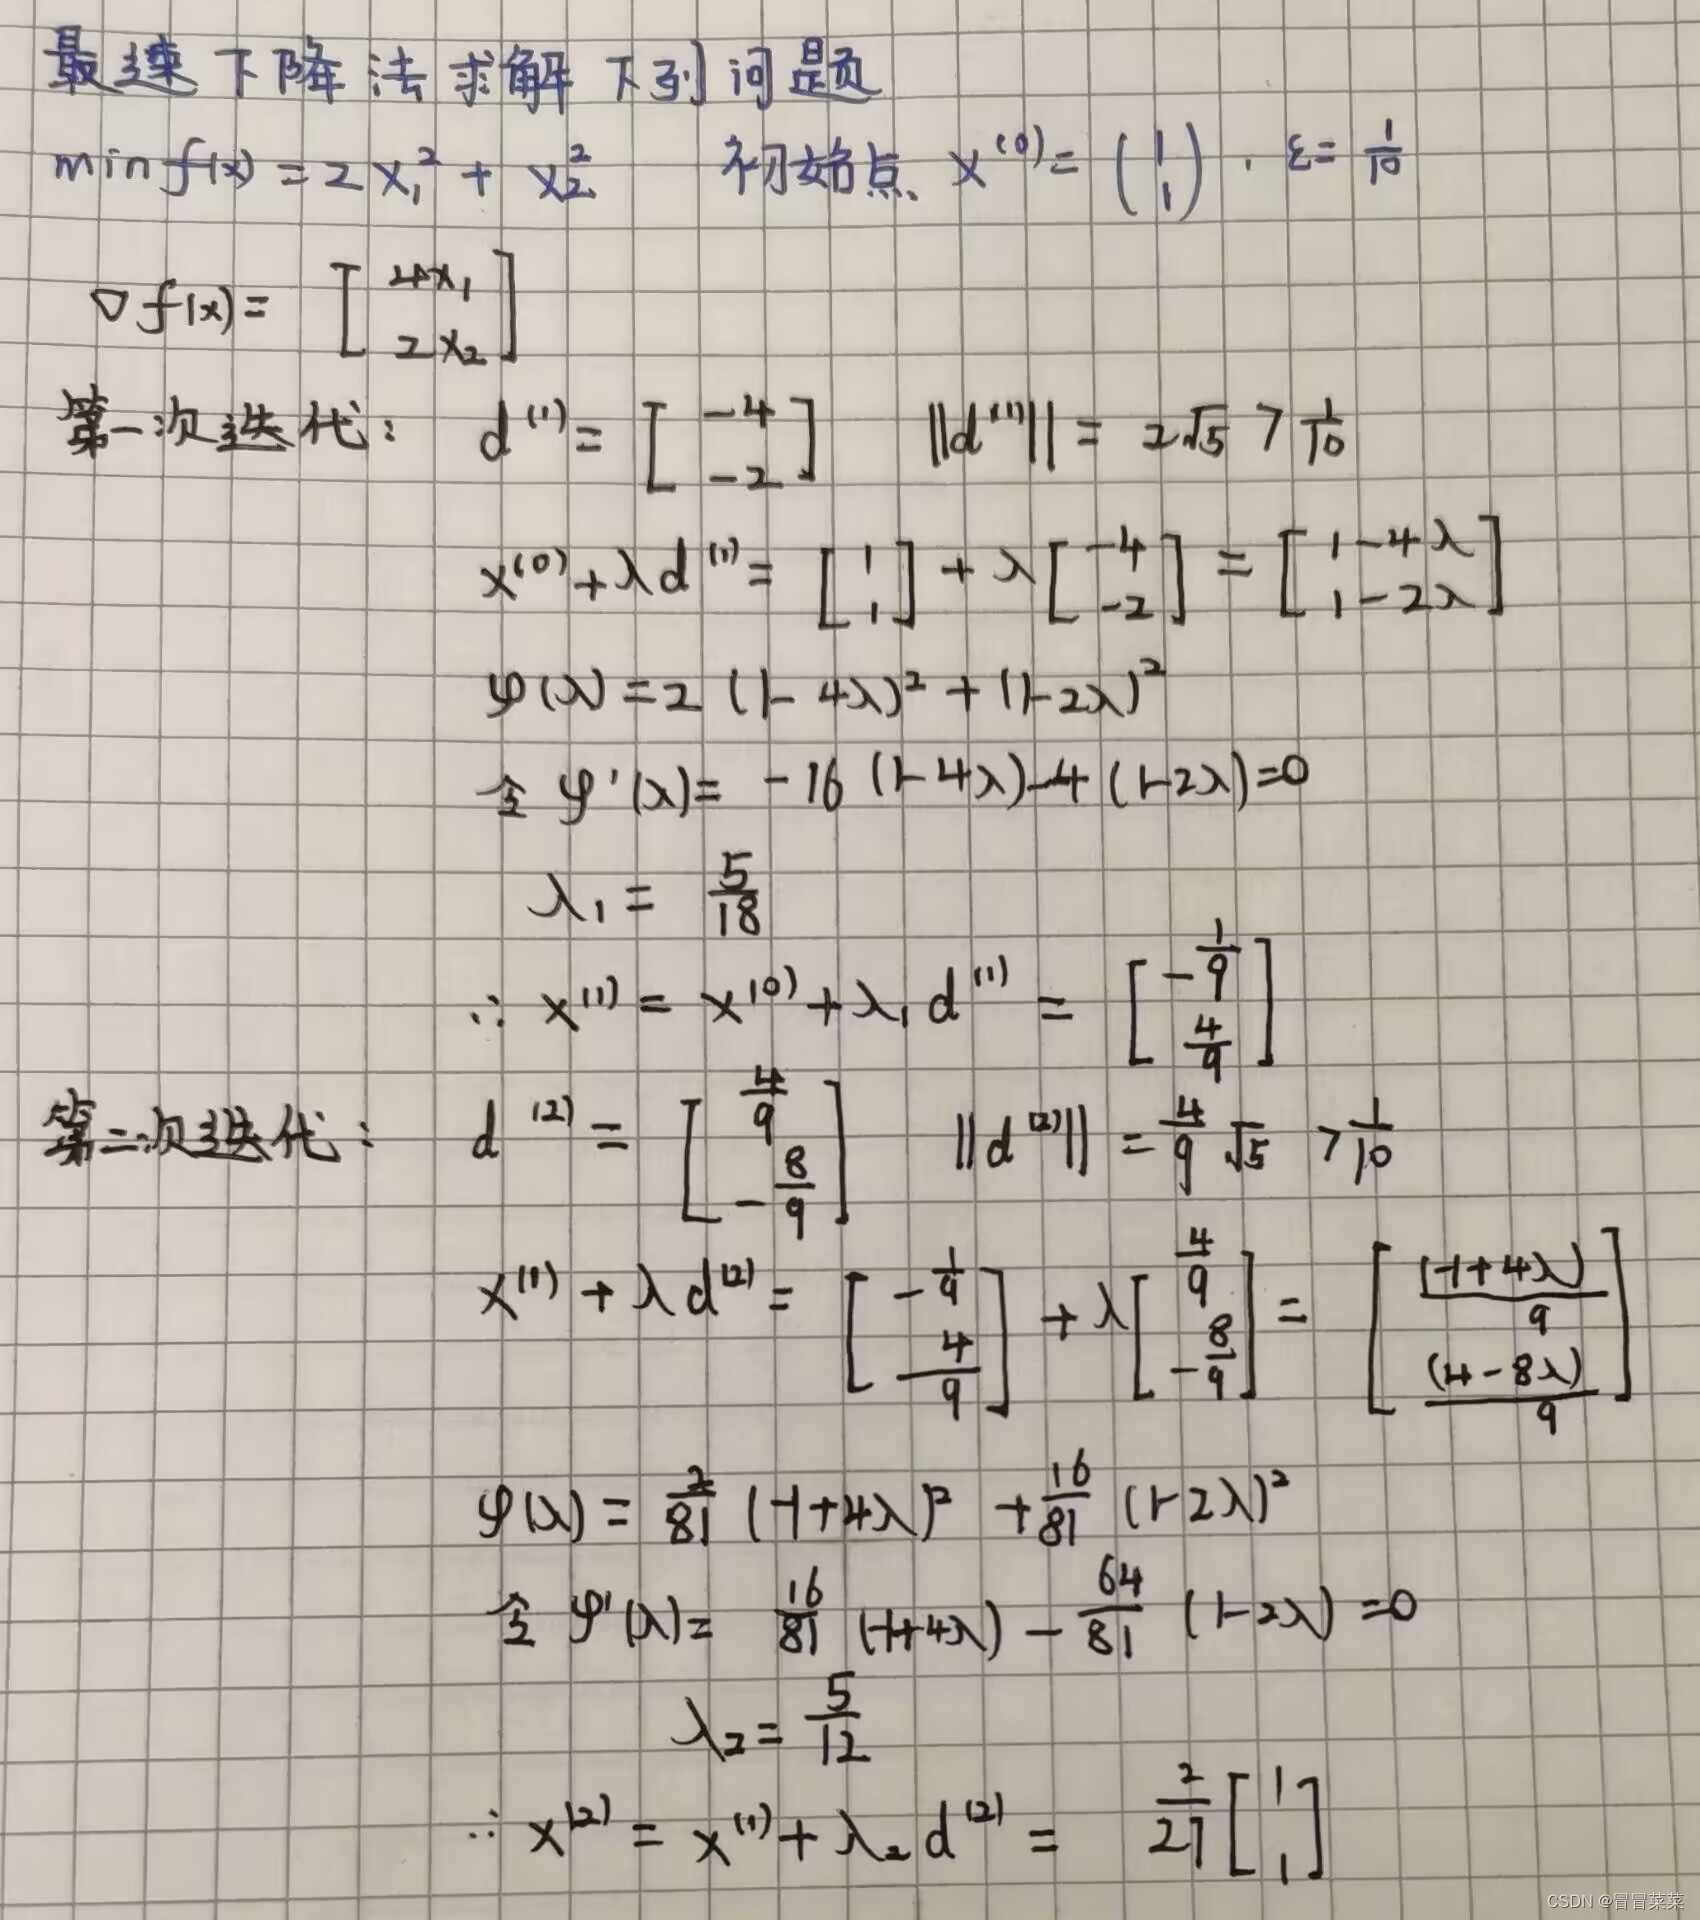 最速下降法求解下列问题
min f(x) = 2x₁² + x₂² 初始点 x⁽⁰⁾ = (1 1) . ε = 1/10
∇f(x) = [4x₁ 2x₂]
第一次迭代: d⁽¹⁾ = [-4 -2] ||d⁽¹⁾|| = 2√5 > 1/10
x⁽⁰⁾ + λd⁽¹⁾ = [1 1] + λ[-4 -2] = [1-4λ 1-2λ]
φ(λ) = 2(1-4λ)² + (1-2λ)²
令 φ'(λ) = -16(1-4λ) - 4(1-2λ) = 0
λ₁ = 5/18
∴ x⁽¹⁾ = x⁽⁰⁾ + λ₁d⁽¹⁾ = [-1/9 4/9]
第二次迭代: d⁽²⁾ = [4/9 -8/9] ||d⁽²⁾|| = 4/9 √5 > 1/10
x⁽¹⁾ + λd⁽²⁾ = [-1/9 4/9] + λ[4/9 -8/9] = [(-1+4λ)/9 (4-8λ)/9]
φ(λ) = 2/81 (-1+4λ)² + 16/81 (1-2λ)²
令 φ'(λ) = 16/81 (-1+4λ) - 64/81 (1-2λ) = 0
λ₂ = 5/12
∴ x⁽²⁾ = x⁽¹⁾ + λ₂d⁽²⁾ = 2/27 [1 1]
CSDN @冒冒菜菜